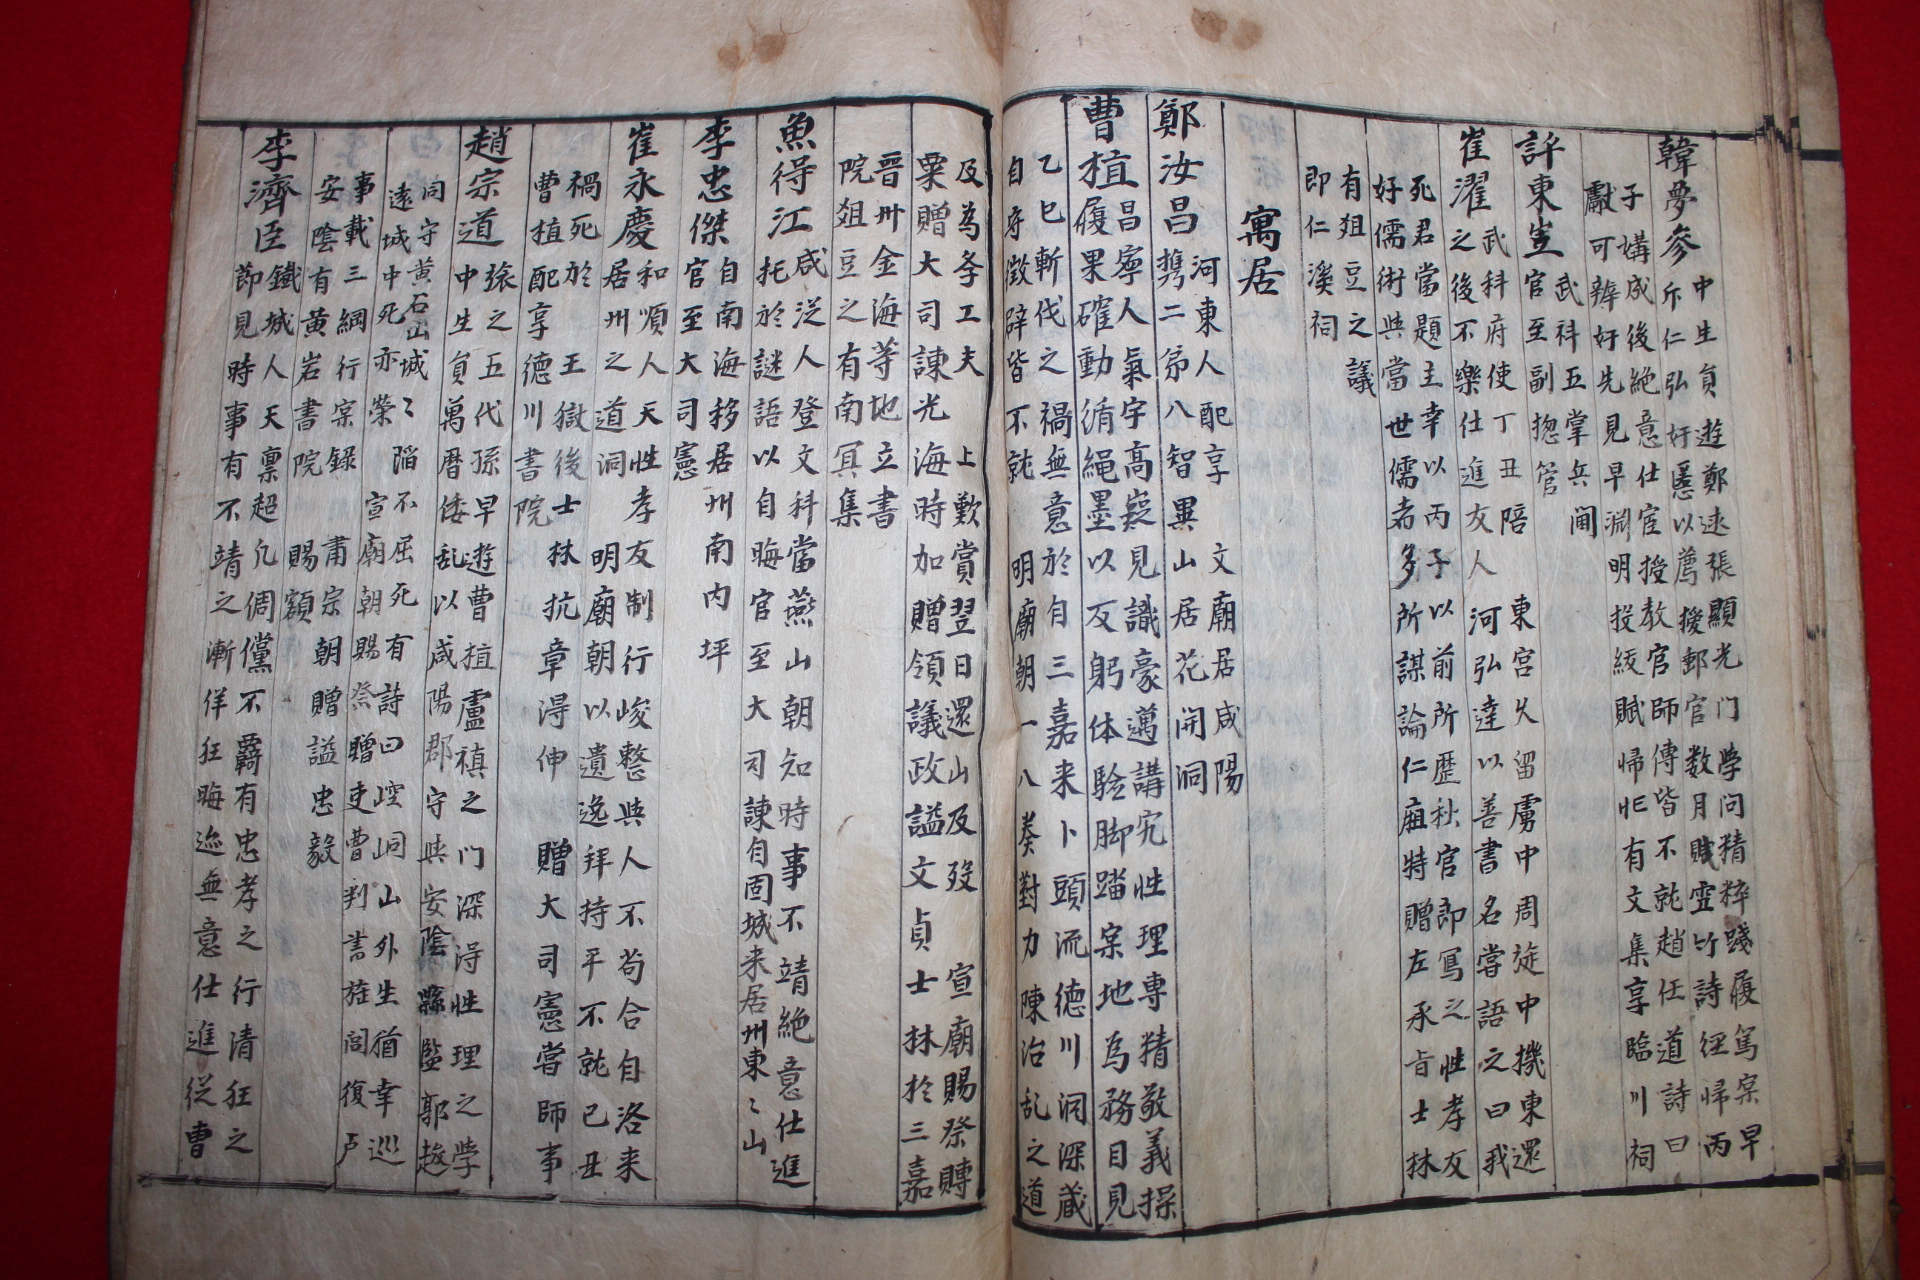 韓夢參
中生員遊鄭逑張顯光门学问精粹踐履篤宲早
斥仁弘奸慝以薦授郵官数月賤空竹詩徑帰丙
子媾成後絶意仕宦授敎官師傅皆不就趙任道詩曰
獻可辨奸先見早淵明投紱賦帰㤗有文集享臨川祠
許東岦
武科五掌兵閫
官至副揔管
崔濯
武科府使丁丑陪東宮久留虜中周旋中機東還
之後不樂仕進友人河弘達以善書名嘗語之曰我
死君當題主幸以丙子以前所歷秋官即寫之性孝友
好儒術與當世儒者多所謀論仁庙特贈左承旨士林
有俎豆之議
即仁溪祠
寓居
鄭汝昌
河東人配享文廟居咸陽
携二弟八智異山居花開洞
曹植
昌寧人氣宇高嶷見識豪邁講究性理專精敬義操
履果確動循繩墨以反躬体驗脚踏宲地為務目見
乙巳斬伐之禍無意於自三嘉来卜頭流德川洞深蔵
自守徵辟皆不就明廟朝一八奏對力陳治乱之道
及為学工夫上歎賞翌日還山及歿宣廟賜祭賻
粟贈大司諫光海時加贈領議政謚文貞士林於三嘉
晋州金海等地立書
院俎豆之有南冥集
魚得江
咸從人登文科當燕山朝知時事不靖絶意仕進
托於謎語以自晦官至大司諫自固城来居州東〻山
李忠傑
自南海移居州南内坪
官至大司憲
崔永慶
和順人天性孝友制行峻整與人不苟合自洛来
居州之道洞明廟朝以遺逸拜持平不就己丑
禍死於王獄後士林抗章淂伸贈大司憲嘗師事
曹植配享德川書院
趙宗道
㨾之五代孫早遊曹植盧禛之门深淂性理之學
中生員萬曆倭乱以咸陽郡守與安陰縣監郭䞭
同守黄石山城〻陷不屈死有詩曰崆峒山外生猶幸巡
遠城中死亦榮宣廟朝賜祭贈吏曹判書旌閭復戶
事載三綱行宲録肅宗朝贈謚忠毅
安陰有黄岩書院賜額
李濟臣
鐵城人天禀超凡倜儻不羈有忠孝之行清狂之
節見時事有不靖之漸佯狂晦迹無意仕進従曹